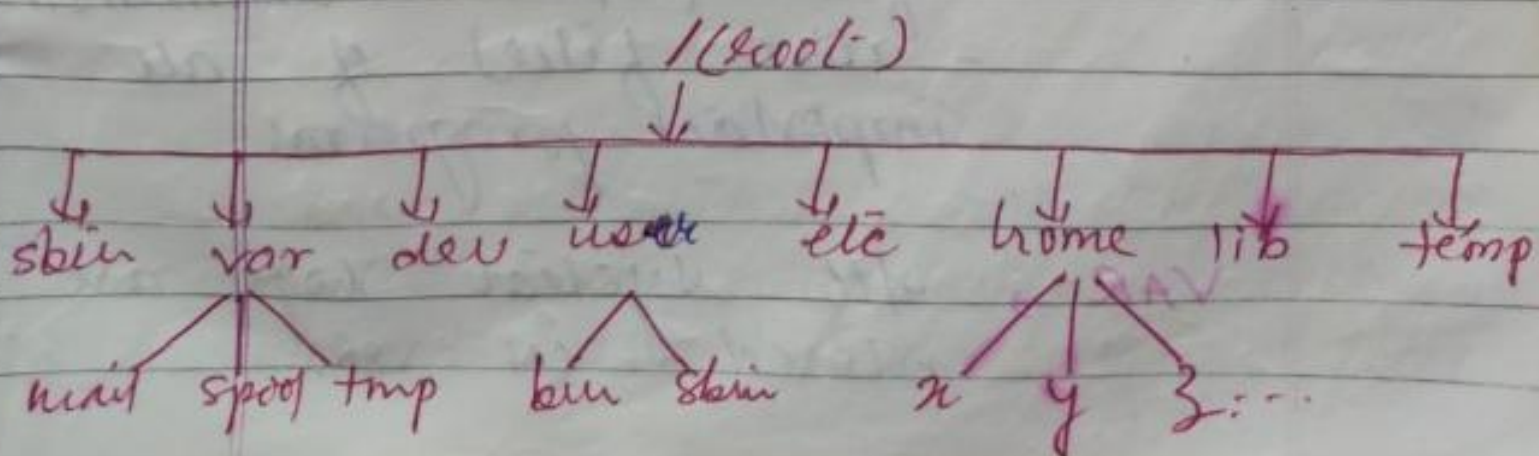 /(root)
sbin var dev user etc home lib temp
mail spool tmp bin sbin x y z....